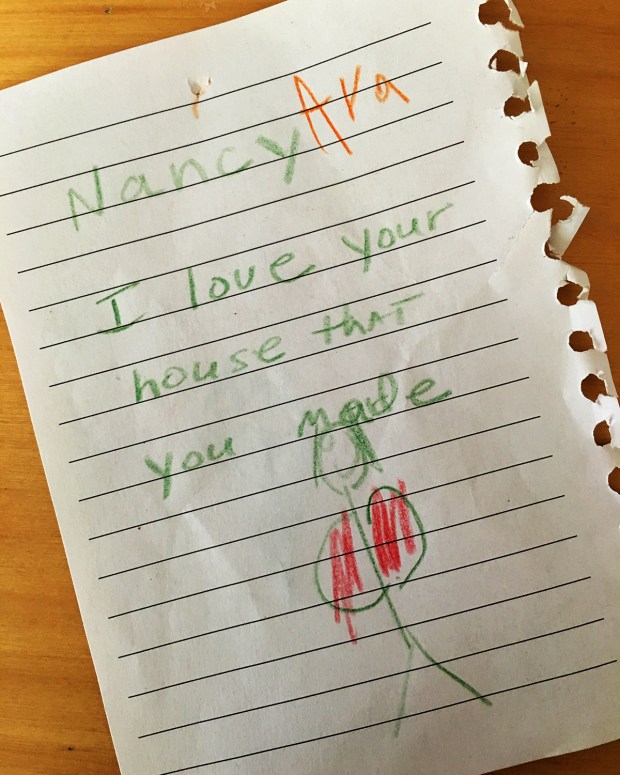 Ava
Nancy
I love your
house that
you made